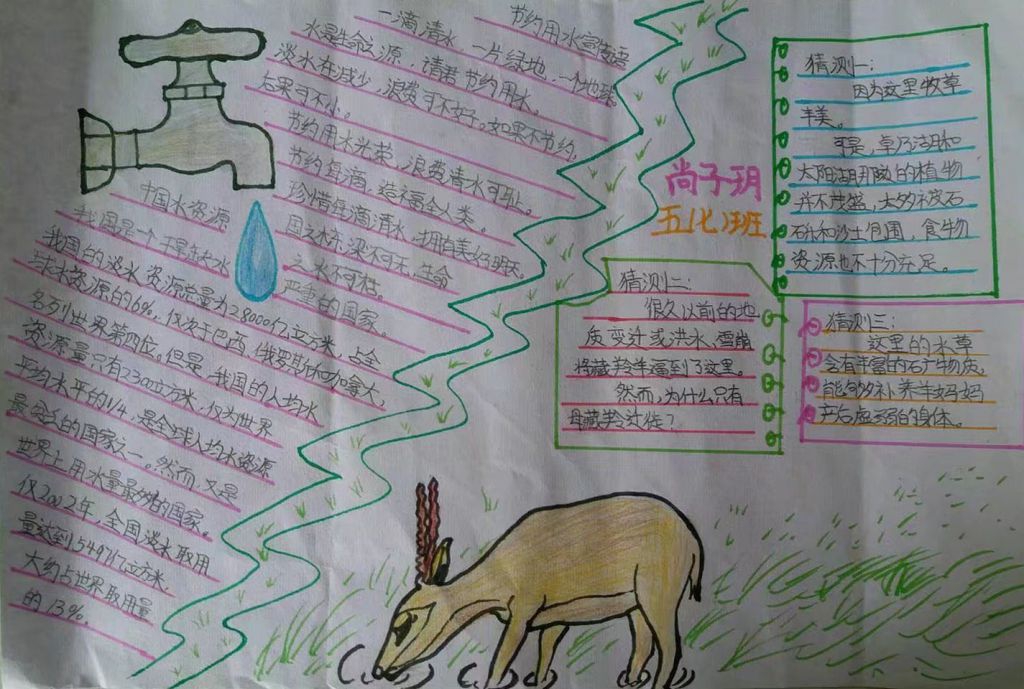 节约用水宣传语
一滴清水，一片绿地，一个地球。
水是生命之源，请君节约用水。
淡水在减少，浪费可不好。如果不节约，
后果可不小。
节约用水光荣，浪费清水可耻。
节约每滴，造福全人类。
珍惜每滴清水，拥有美好明天。
国之木梁不可无，生命
之水不可枯。
中国水资源
我国是一个干旱缺水
严重的国家。
我国的淡水资源总量为28000亿立方米，占全
球水资源的6%，仅次于巴西、俄罗斯和加拿大，
名列世界第四位。但是，我国的人均水
资源量只有2300立方米，仅为世界
平均水平的1/4，是全球人均水资源
最贫乏的国家之一。然而，又是
世界上用水量最多的国家。
仅2002年，全国淡水取用
量达到5497亿立方米，
大约占世界取用量
的13%。
尚子玥
五(七)班
猜测一：
因为这里牧草
丰美。
可是，卓乃湖和
太阳湖那边的植物
并不茂盛，大多被石
砾和沙土包围，食物
资源也不十分充足。
猜测二：
很久以前的地
质变迁或洪水、雪崩
将藏羚羊逼到了这里。
然而，为什么只有
母藏羚迁徙？
猜测三：
这里的水草
含有丰富的矿物质，
能够补养羊妈妈
产后虚弱的身体。